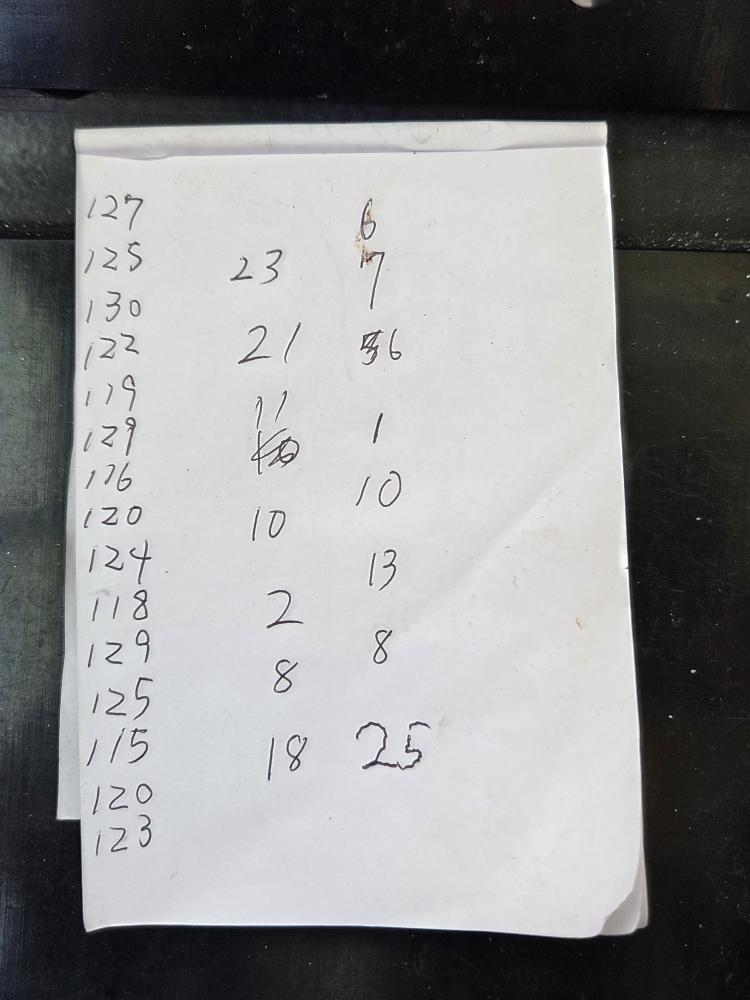 127
6
125 23 7
130
122 21 6
119
11
129 1
116 10
120 10
124 13
118 2
129 8
125 8
115 18 25
120
123